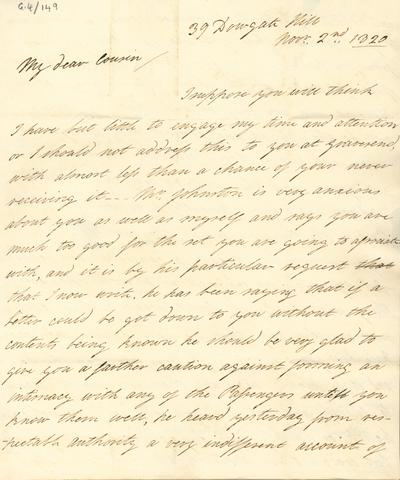 G.4/149
39 Dowgate Hill
Novr. 2nd. 1820
My dear Cousin/
I suppose you will think
I have but little to engage my time and attention
or I should not address this to you at Gravesend,
with almost less than a chance of your never
receiving it--- Mr. Johnston is very anxious
about you as well as myself and says you are
much too good for the set you are going to associate
with, and it is by his particular request that
that I now write. he has been saying that if a
letter could be got down to you without the
contents being known he should be very glad to
give you a farther caution against forming an
intimacy with any of the Passengers untill you
know them well, he heard yesterday from res-
-pectable authority a very indifferent account of